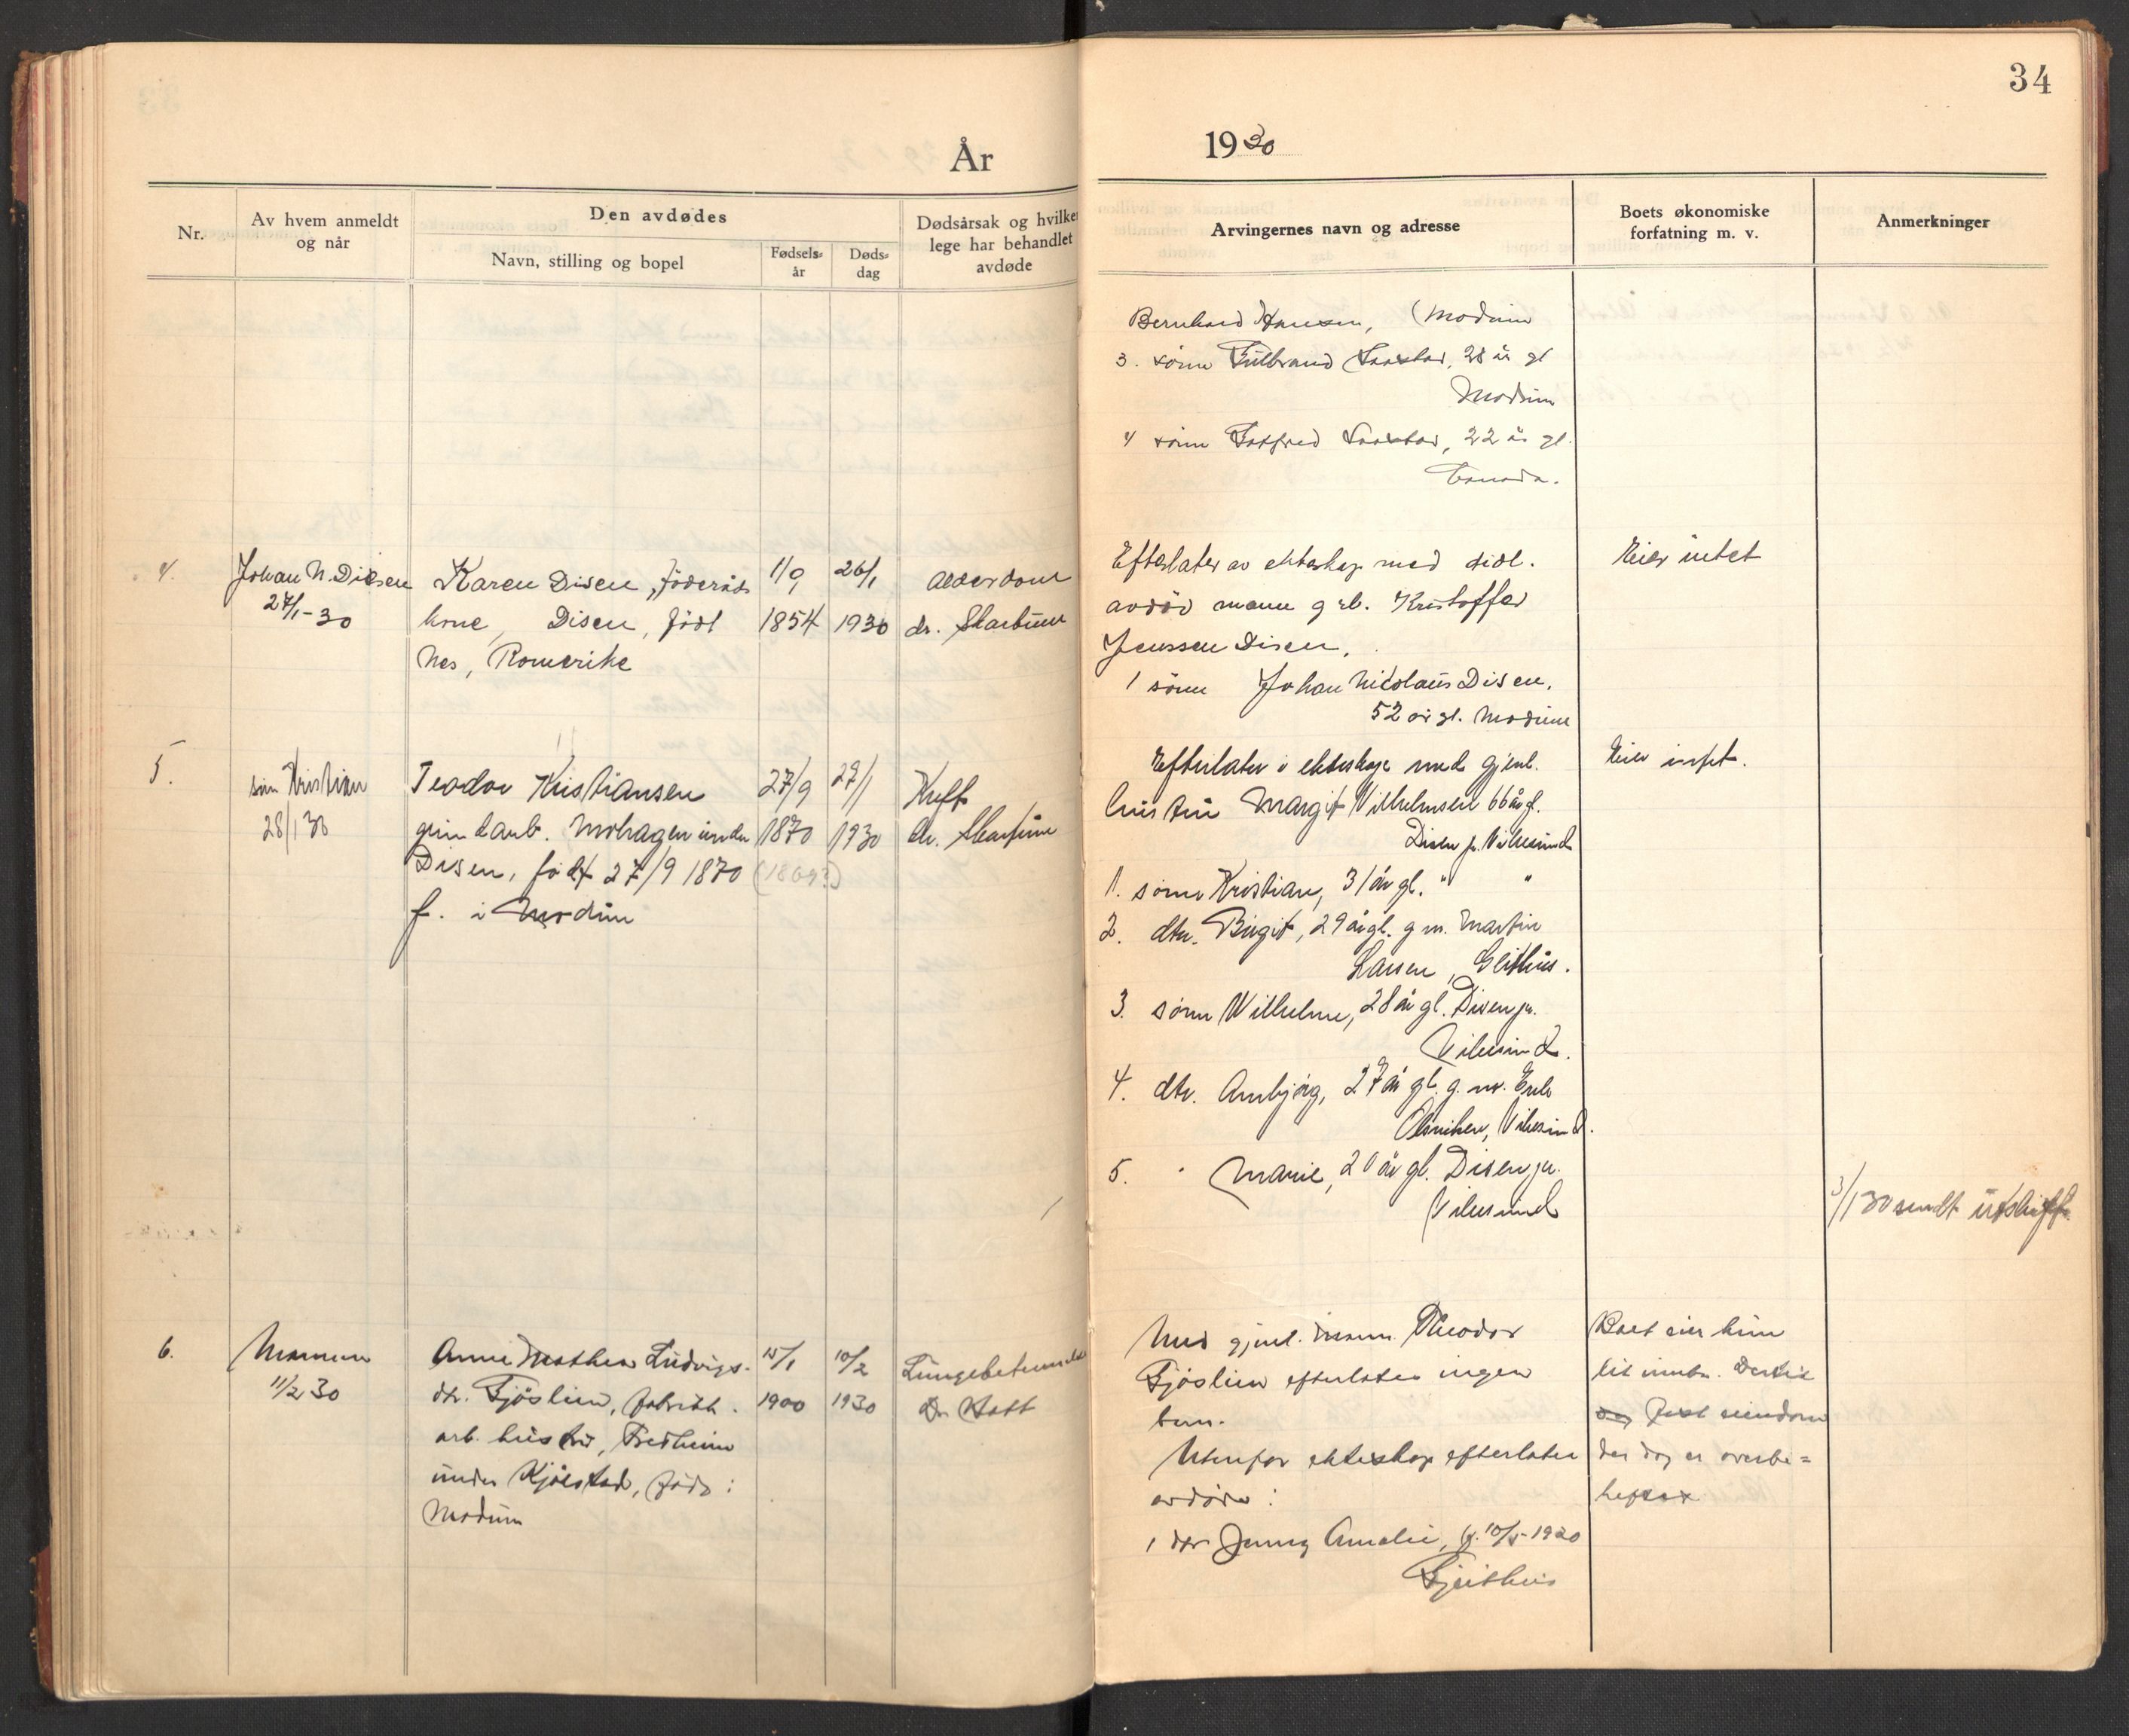 34
År 1930
Nr.
Av hvem anmeldt
og når
Den avdødes
Navn, stilling og bopel
Fødsels-
år
Døds-
dag
Dødsårsak og hvilken
lege har behandlet
avdøde
Arvingernes navn og adresse
Boets økonomiske
forfatning m. v.
Anmerkninger
Bernhard Hansen, Modum
3. sønn Gulbrand 28 år gl
Modum
4 sønn Gotfred 22 år gl.
Canada.
4.
Johan N. Disen
27/1-30
Karen Disen, föderåds
kone, Disen, født
Nes, Romerike
1/9
1854
26/1
1930
Alderdom
dr. Skartum
Efterlater av ekteskap med tidl.
avdød mann g.rb. Kristoffer
Jenssen Disen.
1 sønn Johan Nicolaus Disen,
52 år gl. Modum
Eier intet
5.
søn Kristian
28/1 30
Teodor Kristiansen
grundarb. Mohagen under
Disen, født 27/9 1870 (1869?)
f. i Modum
27/9
1870
27/1
1930
Kreft
dr. Skartum
Efterlater i ekteskap med gjenl.
hustru Margit Vilhelmsen 66 år gl.
Disen pr. Vikersund
1. sønn Kristian, 31 år gl. " "
2. dtr. Birgit, 29 år gl. g m. Martin
Larsen, Geithus.
3. sønn Wilhelm, 28 år gl. Disen pr.
Vikersund.
4. dtr. Ambjørg, 27 år gl. g. m. Erik
Vikersund.
5. " Marie, 20 år gl. Disen pr.
Vikersund
Eier intet.
3/1 30 sendt utskift
6.
Mannen
11/2 30
Anna Mathea Ludvigs-
dtr. Fjøslien, fabrikk-
arb. hustru, Fredheim
under Kjølstad, født i
Modum
15/1
1900
10/2
1930
Lungebetennelse
Dr Hott
Med gjenl. mann Theodor
Fjøslien efterlates ingen
barn.
Utenfor ekteskap efterlater
avdøde:
1 dtr Jenny Amalie, f. 10/5-1920
Geithus
Boet eier kun
litt innbo. Dertil
fast eiendom
der dog er overbe=
heftet